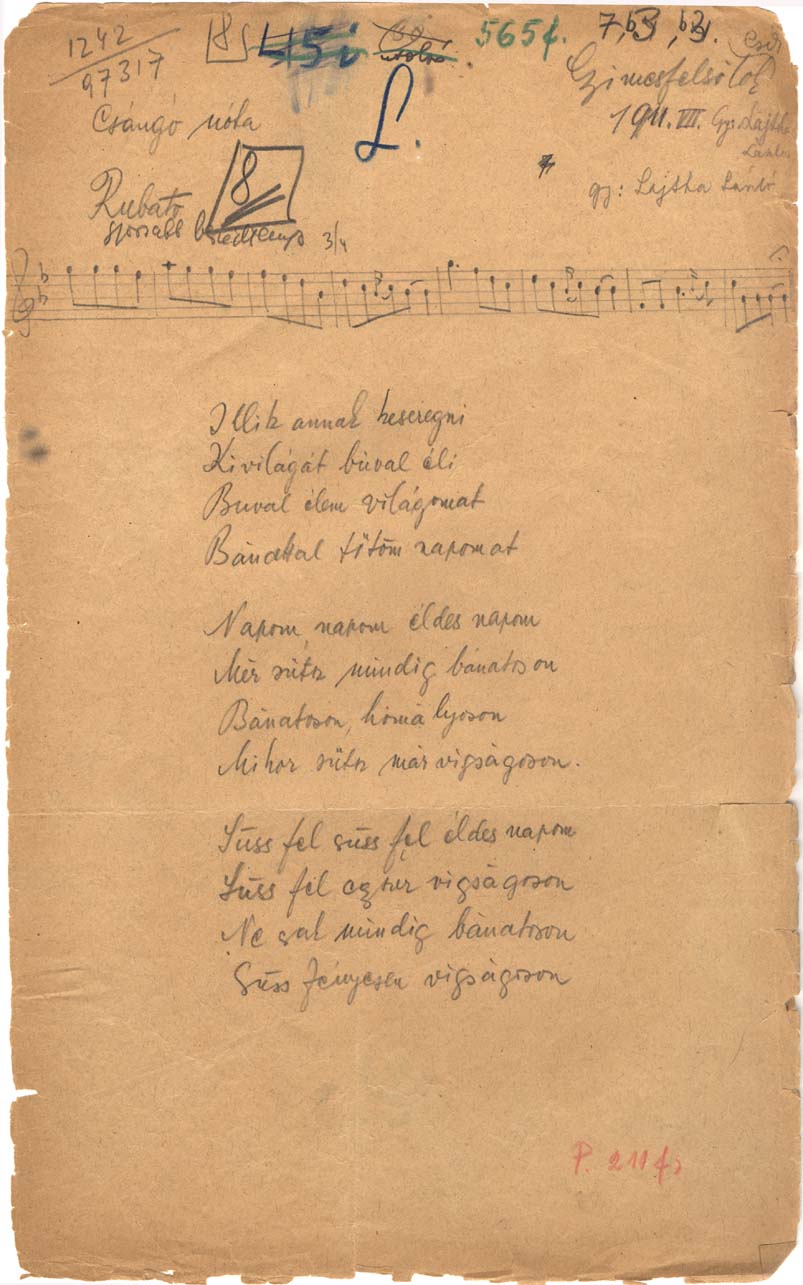 1242
97317
8
45i
565f.
7, b3, b3.
Csángó nóta
L.
Gzimesfelsőlok
1911. VII. Gy. Lajtha László
gy: Lajtha László
8
Rubato
3/4
Illik annak keseregni
Kivilágát búval éli
Buval élem világomat
Bánattal tőtöm napomat
Napom, napom éldes napom
Mér sütsz mindig bánatoson
Bánatoson, homályoson
Mikor sütsz már vigságoson.
Süss fel süss fel éldes napom
Süss fel egszer vigságoson
Ne sak mindig bánatoson
Süss fényesen vigságoson
P. 211f2